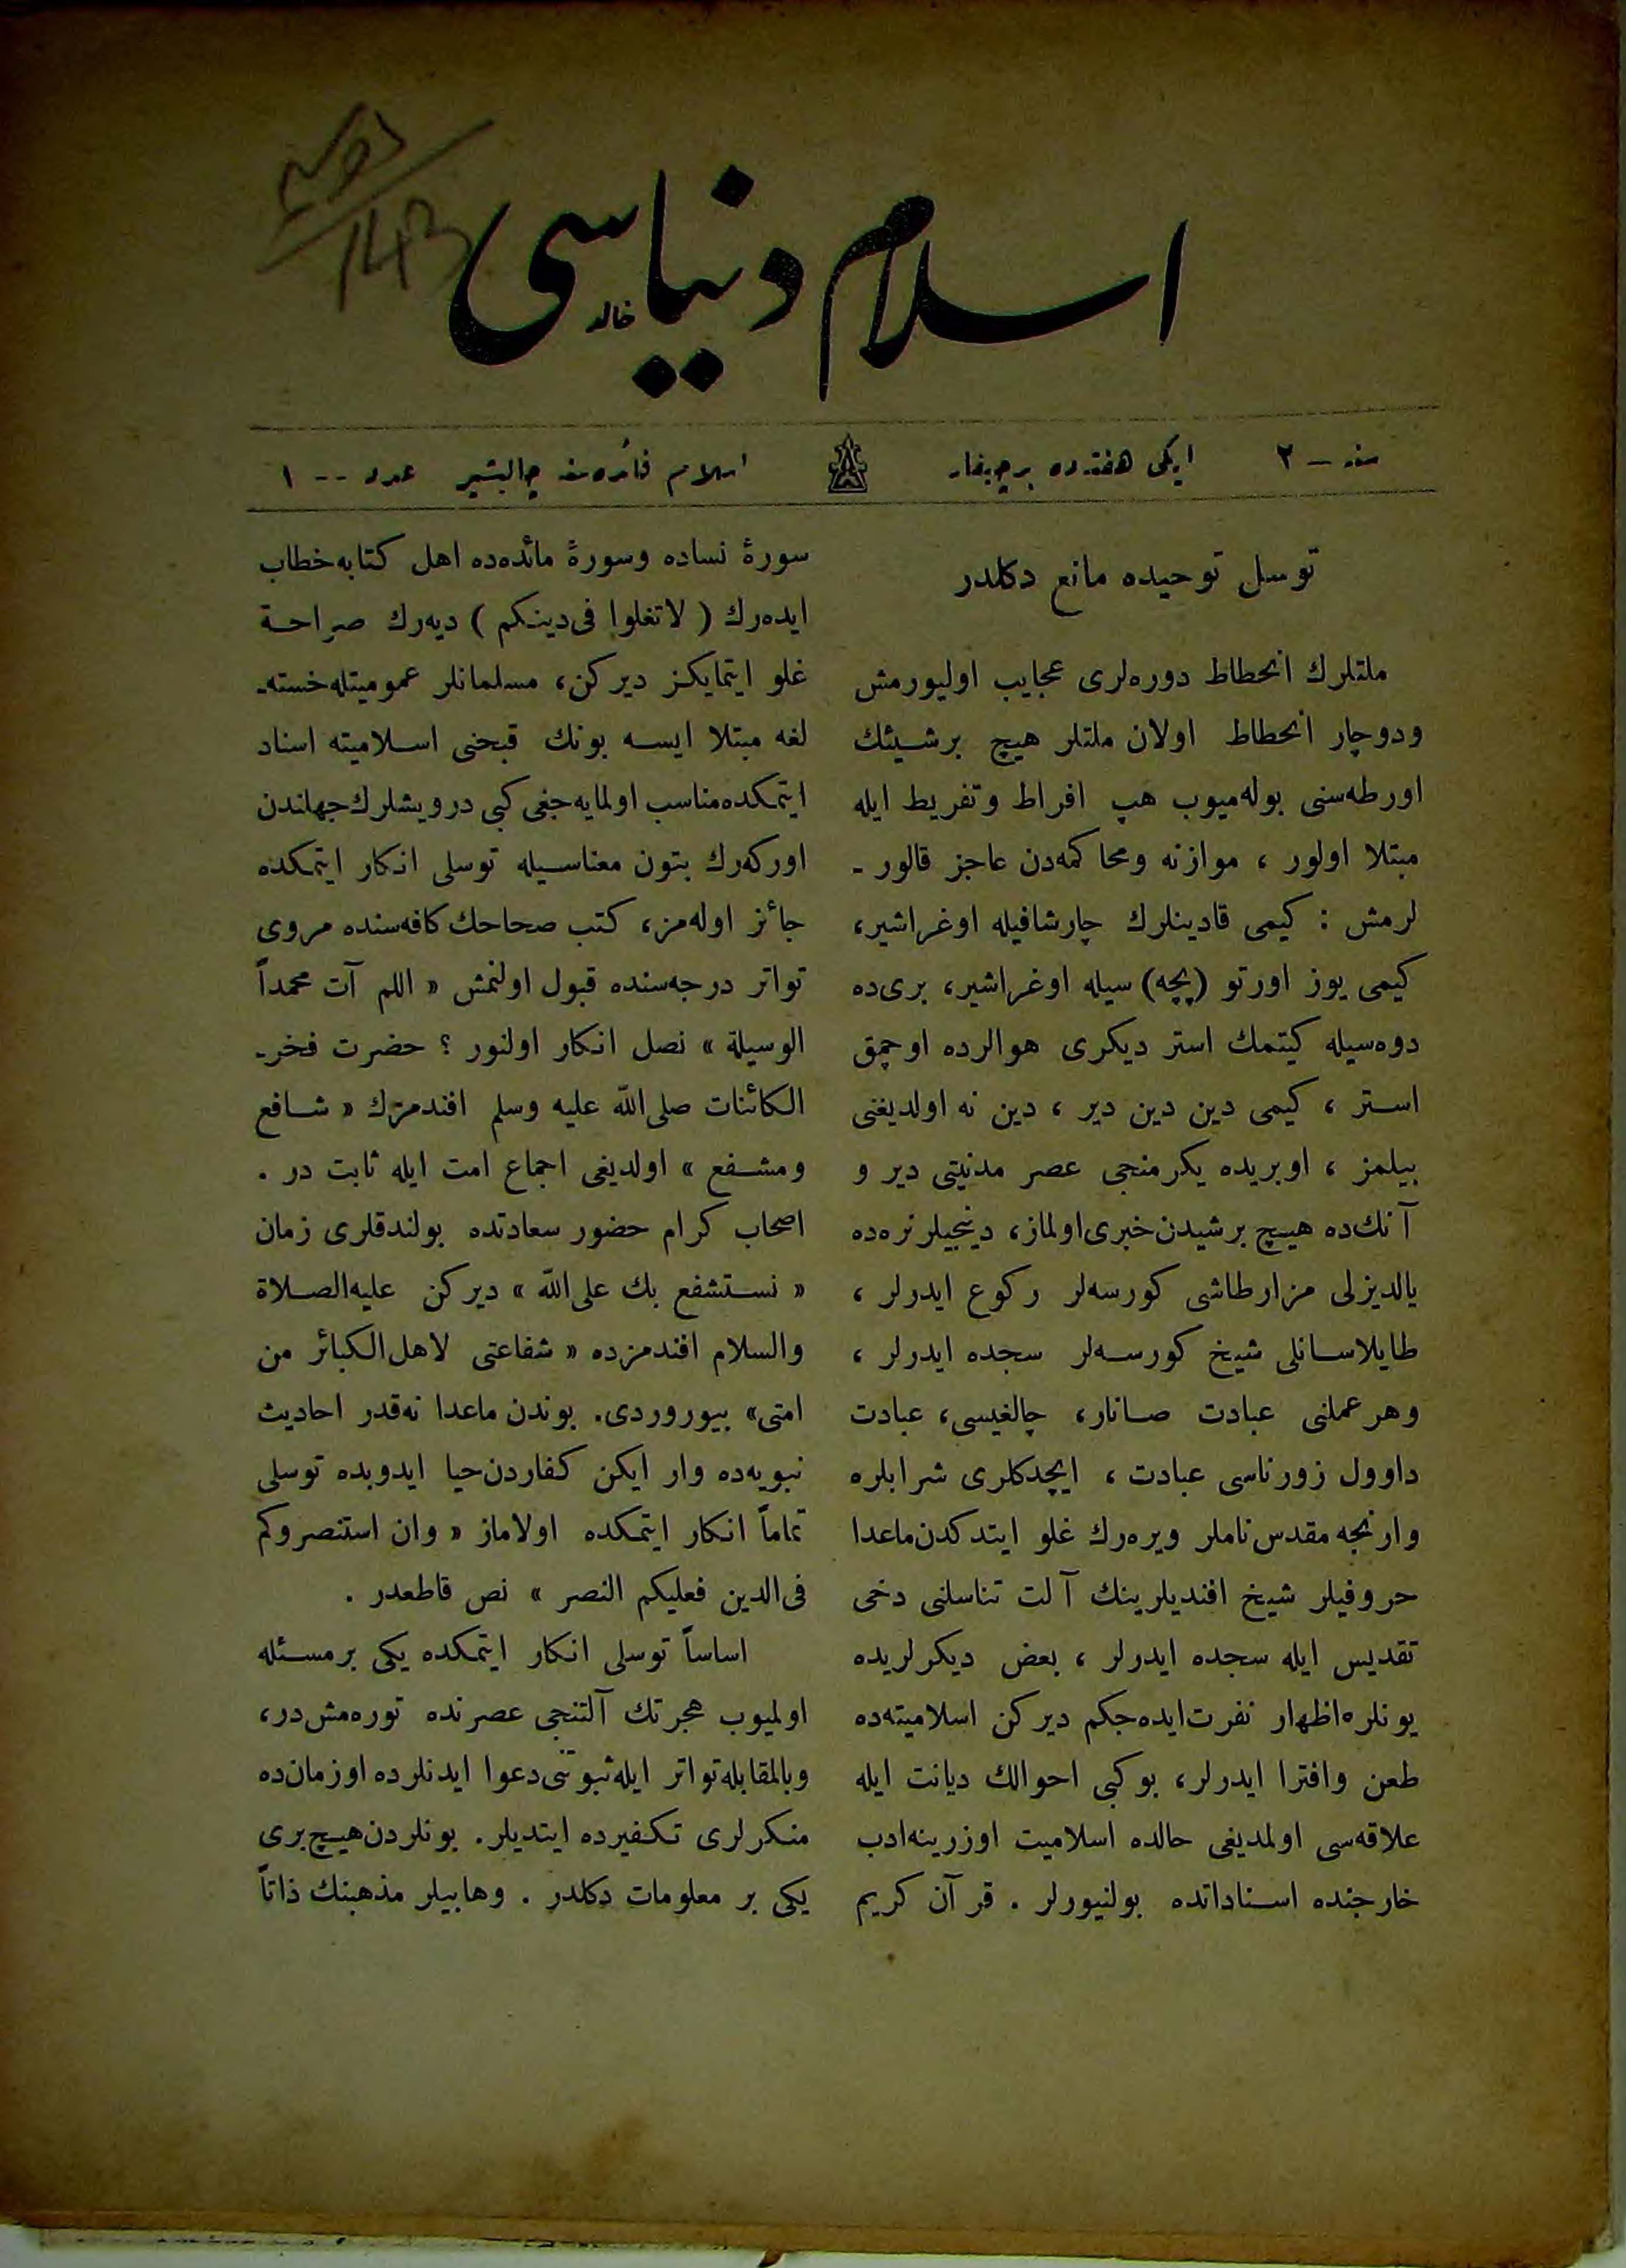 اسلام دنیاسی
خالد
143
سنه – ۲
ایکی هفته‌ده بر چیقار
اسلام فائده‌سنه چالیشیر
عدد -- ۱
توسل توحیده مانع دکلدر
ملتلرك انحطاط دوره‌لری عجایب اولیورمش
ودوچار انحطاط اولان ملتلر هیچ برشیئك
اورطه‌سنی بوله‌میوب هپ افراط وتفریط ایله
مبتلا اولور ، موازنه ومحاکمه‌دن عاجز قالور ـ
لرمش : کیمی قادینلرك چارشافیله اوغراشیر،
کیمی یوز اورتو (پچه) سیله اوغراشیر، بری‌ده
دوه‌سیله کیتمك استر دیکری هوالرده اوچمق
استر ، کیمی دین دین دیر ، دین نه اولدیغنی
بیلمز ، اوبریده یکرمنجی عصر مدنیتی دیر و
آنك‌ده هیچ برشیدن خبری اولماز، دینجیلر نره‌ده
یالدیزلی مزارطاشی کورسه‌لر رکوع ایدرلر ،
طایلاسانلی شیخ کورسه‌لر سجده ایدرلر ،
وهر عملنی عبادت صانار، چالغیسی، عبادت
داوول زورناسی عبادت ، ایچدکلری شرابلره
وارنجه مقدس ناملر ویره‌رك غلو ایتدکدن ماعدا
حروفیلر شیخ افندیلرینك آلت تناسلنی دخی
تقدیس ایله سجده ایدرلر ، بعض دیکرلریده
یونلره اظهار نفرت ایده‌جکم دیرکن اسلامیته‌ده
طعن وافترا ایدرلر، بوکبی احوالك دیانت ایله
علاقه‌سی اولمدیغی حالده اسلامیت اوزرینه ادب
خارجنده اسناداتده بولنیورلر . قرآن کریم
سورۀ نساده وسورۀ مائده‌ده اهل کتابه خطاب
ایده‌رك ( لاتغلوا فی‌دینکم ) دیه‌رك صراحة
غلو ایتمایکز دیرکن، مسلمانلر عمومیتله خسته‌ـ
لغه مبتلا ایسه بونك قبحنی اسلامیته اسناد
ایتمکده مناسب اولمایه‌جغی کبی درویشلرك جهلندن
اورکه‌رك بتون معناسیله توسلی انکار ایتمکده
جائز اوله‌مز، کتب صحاحك کافه‌سنده مروی
تواتر درجه‌سنده قبول اولنمش « اللم آت محمداً
الوسیلة » نصل انکار اولنور ؟ حضرت فخرـ
الکائنات صلی‌الله علیه وسلم افندمزك « شافع
ومشفع » اولدیغی اجماع امت ایله ثابت در .
اصحاب کرام حضور سعادتده بولندقلری زمان
« نستشفع بك علی‌الله » دیرکن علیه‌الصلاة
والسلام افندمزده « شفاعتی لاهل‌الکبائر من
امتی» بیوروردی. بوندن ماعدا نه‌قدر احادیث
نبویه‌ده وار ایکن کفاردن حیا ایدوبده توسلی
تماماً انکار ایتمکده اولاماز « وان استنصروکم
فی‌الدین فعلیکم النصر » نص قاطعدر .
اساساً توسلی انکار ایتمکده یکی برمسئله
اولمیوب هجرتك آلتنجی عصرنده توره‌مش‌در،
وبالمقابله تواتر ایله ثبوتنی دعوا ایدنلرده اوزمان‌ده
منکرلری تکفیرده ایتدیلر. بونلردن هیچ بری
یکی بر معلومات دکلدر . وهابیلر مذهبنك ذاتاً